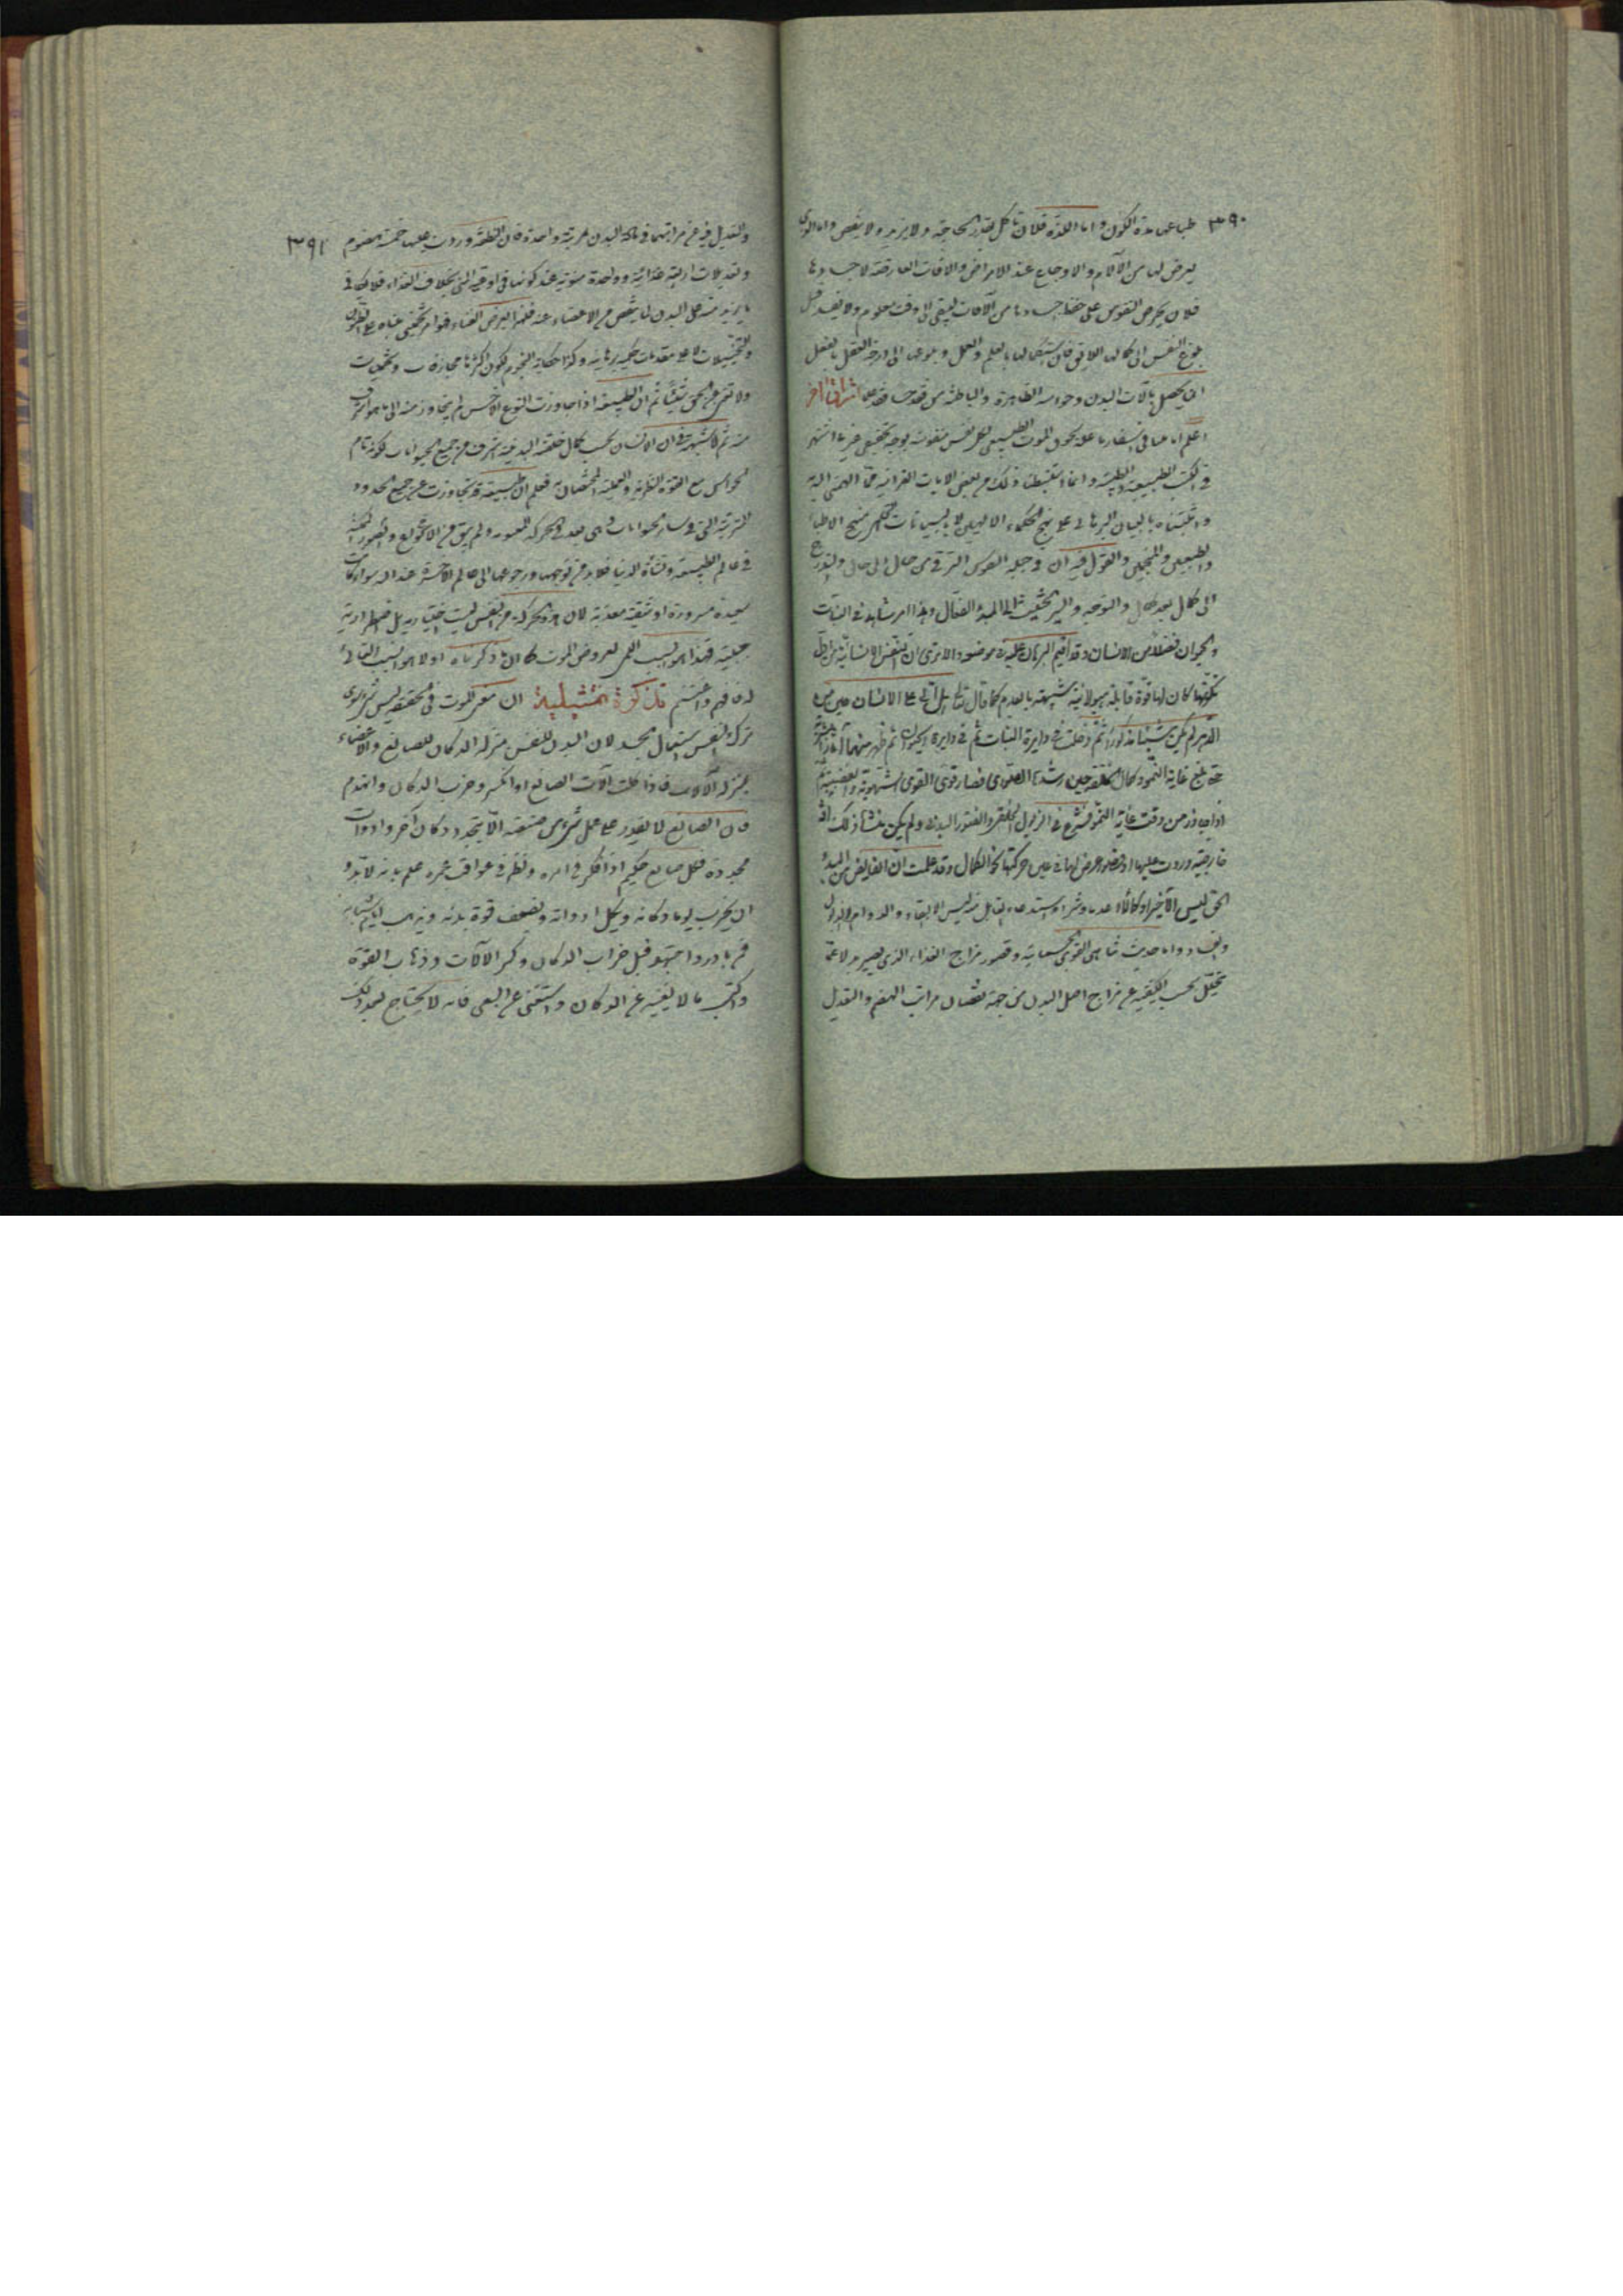 ٣٩٠
طباعى مدة الكون واما اللذة فلان تاكل بقدر الحاجة ولا يزيد ولا ينقص واما
يعرض لها من الآلام والاوجاع عند الامراض والآفات العارضة لاجسادها
فلان يحرص النفوس على حفظ اجسادها من الآفات ليبقى الى وقت معلوم ولا يفسد قبل
بلوغ النفس الى كمالها اللايق فان استكمالها بالعلم والعمل وبلوغها الى درجة العقل بالفعل
انما يحصل بآلات البدن وحواسه الظاهرة والباطنة من فقد حسا فقد علما اشراق آخر
اعلم انا عما فى اسفارنا علة لحوق الموت الطبيعى لكل نفس منفوسة بوجه تحقيقى غير ما اشتهر
فى الكتب الطبيعية والطبية وانما استنبطنا ذلك من بعض الايات القرآنية مما الهمنى اليه
واثبتناه بالبيان البرهانى على نهج الحكماء الالهيين لا بالبيانات على منهج الاطباء
والطبيعيين والمنجمين والقول فيه ان فى جبلة النفوس الترقى من حال الى حال والتدرج
الى كمال بعد كمال والتوجه والسير الحثيث الى المبدء الفعال وهذا امر مشاهد فى النبات
والحيوان فضلا من الانسان وقد اقيم البرهان عليه فى موضعه والا ترى ان النفس الانسانية من اول
تكونها كان لها قوة قابلة هيولانية شبيهة بالعدم كما قال تعالى هل اتى على الانسان حين من
الدهر لم يكن شيئا مذكورا ثم دخلت فى دايرة النبات ثم فى دايرة الحيوان ثم ظهر منها آثار البشرية
حتى بلغ غاية النمو وكمال الخلقة حين رشدها الصورى فصار قوى القوى الشهوية والغضبية
اذا جاوز من وقت غاية النمو فشرع فى الذبول الخلقى والفتور البدنى ولم يكن منشأ ذلك
خارجية وردت عليها او خلل عرض لها فى عين حركتها نحو الكمال وقد علمت ان الفايض من المبدء
الحق ليس الا خيرا وكمالا لا عدما وشرا واستدعاء القابل منه ليس الا البقاء والدوام لا الزوال
والفساد واما حديث تناهى القوى الجسمانية وقصور مزاج الغذاء الذى يصير بدلا عما
يتحلل بحسب الكيفية عن مزاج اصل البدن من جهة نقصان مراتب الهضم والتعديل
٣٩١
والتعديل فيه عن مراتبهما فى مادة البدن بمرتبة واحدة فان النطفة وردت عليها خمسة هضوم
وتعديلات اربعة غذائية وواحدة منوية عند كونها فى اوعية المنى بخلاف الغذاء فلا يكافى
ما يزيد منه على البدن لما ينقص من الاعضاء عنه فلهذا يعرض الفناء فهو امر تخمينى مبناه على الظنون
والتخييلات لا على مقدمات حكمية برهانية وكذا حكاية النجوم لكون اكثرها مجازفات وتخمينات
ولا تغنى عن الحق شيئا ثم ان الطبيعة اذا جاوزت النوع الاخس لم يتجاوز منه الى ما هو اشرف
منه ثم لا شبهة فى ان الانسان بحسب كمال خلقته البدنية اشرف من جميع الحيوانات لكونه تام
الحواس مع القوة النظرية والعملية المختصتان به فعلم ان الطبيعة قد تجاوزت عن جميع الحدود
المترتبة التى فى ساير الحيوانات وهى بعد فى الحركة المعنوية ولم يبق من الانواع والصور الممكنة
فى عالم الطبيعة ونشأة الدنيا فلابد من توجهها ورجوعها الى عالم الآخرة عند الله سواء كانت
سعيدة مسرورة او شقية معذبة لان هذه الحركة من النفس ليست اختيارية بل اضطرارية
جبلية فهذا هو السبب اللمى لعروض الموت كما ذكرناه اولا هو السبب الغائى
له فافهم واغتنم تذكرة تمثيلية ان معنى الموت فى الحقيقة ليس شيئا سوى
ترك النفس استعمال الجسد لان البدن للنفس بمنزلة الدكان للصانع والاعضاء
بمنزلة الآلات فاذا كلت آلات الصانع او انكسر وخرب الدكان وانهدم
فان الصانع لا يقدر على عمل شىء من صنعته الا بتجدد دكان آخر وادوات
مجددة فكل صانع حكيم اذا فكر فى امره ونظر فى عواقب عمره علم بانه لابد
ان يخرب يوما دكانه ويكل ادواته ويضعف قوة بدنه ويذهب ايام شبابه
فمن بادر واجتهد قبل خراب الدكان وكسر الآلات وذهاب القوة
واكتسب مالا يغنيه عن الدكان واستغنى عن السعى فانه لا يحتاج بعد ذلك